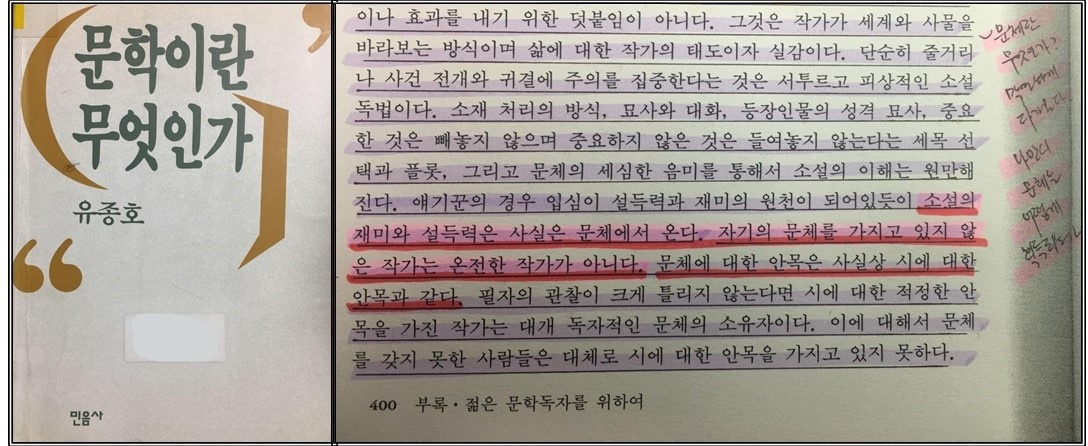 문학이란
무엇인가
유종호
민음사
이나 효과를 내기 위한 덧붙임이 아니다. 그것은 작가가 세계와 사물을
바라보는 방식이며 삶에 대한 작가의 태도이자 실감이다. 단순히 줄거리
나 사건 전개와 귀결에 주의를 집중한다는 것은 서투르고 피상적인 소설
독법이다. 소재 처리의 방식, 묘사와 대화, 등장인물의 성격 묘사, 중요
한 것은 빼놓지 않으며 중요하지 않은 것은 들여놓지 않는다는 세목 선
택과 플롯, 그리고 문체의 세심한 음미를 통해서 소설의 이해는 원만해
진다. 얘기꾼의 경우 입심이 설득력과 재미의 원천이 되어있듯이 소설의
재미와 설득력은 사실은 문체에서 온다. 자기의 문체를 가지고 있지 않
은 작가는 온전한 작가가 아니다. 문체에 대한 안목은 사실상 시에 대한
안목과 같다. 필자의 관찰이 크게 틀리지 않는다면 시에 대한 적정한 안
목을 가진 작가는 대개 독자적인 문체의 소유자이다. 이에 대해서 문체
를 갖지 못한 사람들은 대체로 시에 대한 안목을 가지고 있지 못하다.
400 부록·젊은 문학독자를 위하여
문체란
무엇인가?
나만의
문체는
어떻게